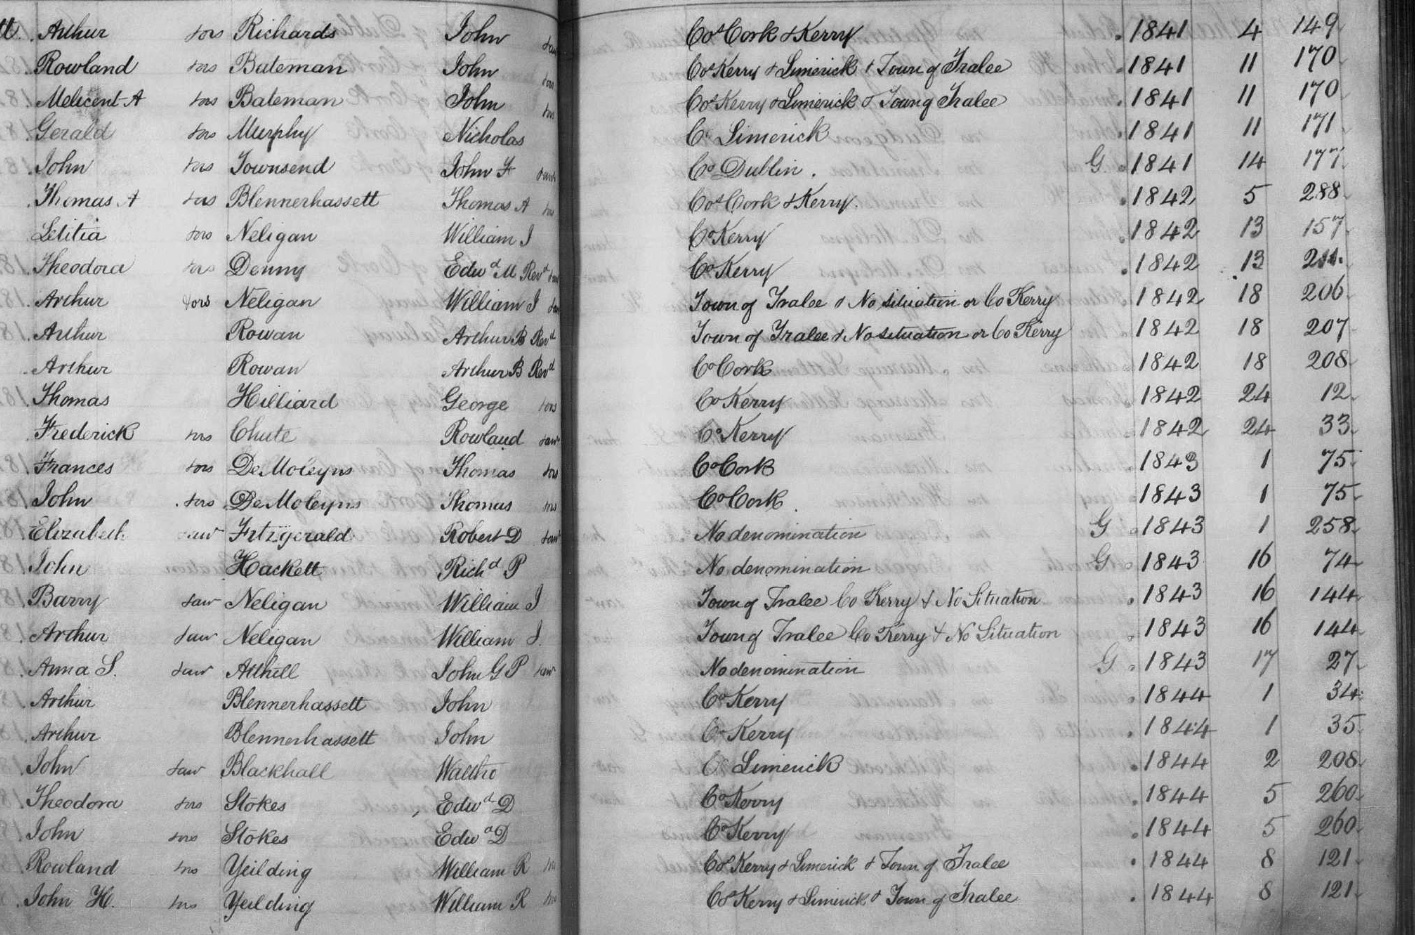 Arthur sors Richards John Cos Cork & Kerry 1841 4 149
Rowland sors Bateman John Cos Kerry & Limerick & Town of Tralee 1841 11 170
Melicent A sors Bateman John Cos Kerry & Limerick & Town of Tralee 1841 11 170
Gerald sors Murphy Nicholas Co Limerick 1841 11 171
John sors Townsend John F Co Dublin. G 1841 14 177
Thomas A sors Blennerhassett Thomas A Cos Cork & Kerry. 1842 5 288
Letitia sors Neligan William J Co Kerry 1842 13 157
Theodora sors Denny Edwd M Revd Co Kerry 1842 13
Arthur sors Neligan William J Town of Tralee & No situation or Co Kerry 1842 18 206
Arthur Rowan Arthur B Revd Town of Tralee & No situation or Co Kerry 1842 18 207
Arthur Rowan Arthur B Revd Co Cork 1842 18 208
Thomas Hilliard George sors Co Kerry 1842 24 12
Frederick sors Chute Rowland Co Kerry 1842 24 33
Frances sors DeMoleyns Thomas sors Co Cork 1843 1 75
John sors DeMoleyns Thomas Co Cork. 1843 1 75
Elizabeth saw Fitzgerald Robert D saw No denomination G 1843 1 258
John Hackett Richd P No denomination G 1843 16 74
Barry saw Neligan William J Town of Tralee Co Kerry & No Situation 1843 16 144
Arthur saw Neligan William J. Town of Tralee Co Kerry & No Situation 1843 16 144
Anna S. saw Atthill John G P saw No denomination G 1843 17 27
Arthur Blennerhassett John Co Kerry 1844 1 34
Arthur Blennerhassett John Co Kerry 1844 1 35
John saw Blackhall Co Limerick 1844 2 208
Theodora sors Stokes Edwd D Co Kerry 1844 5 260
John sors Stokes Edwd D Co Kerry 1844 5 260
Rowland sors Yeilding William R Cos Kerry & Limerick & Town of Tralee 1844 8 121
John H. sors Yeilding William R Cos Kerry & Limerick & Town of Tralee 1844 8 121